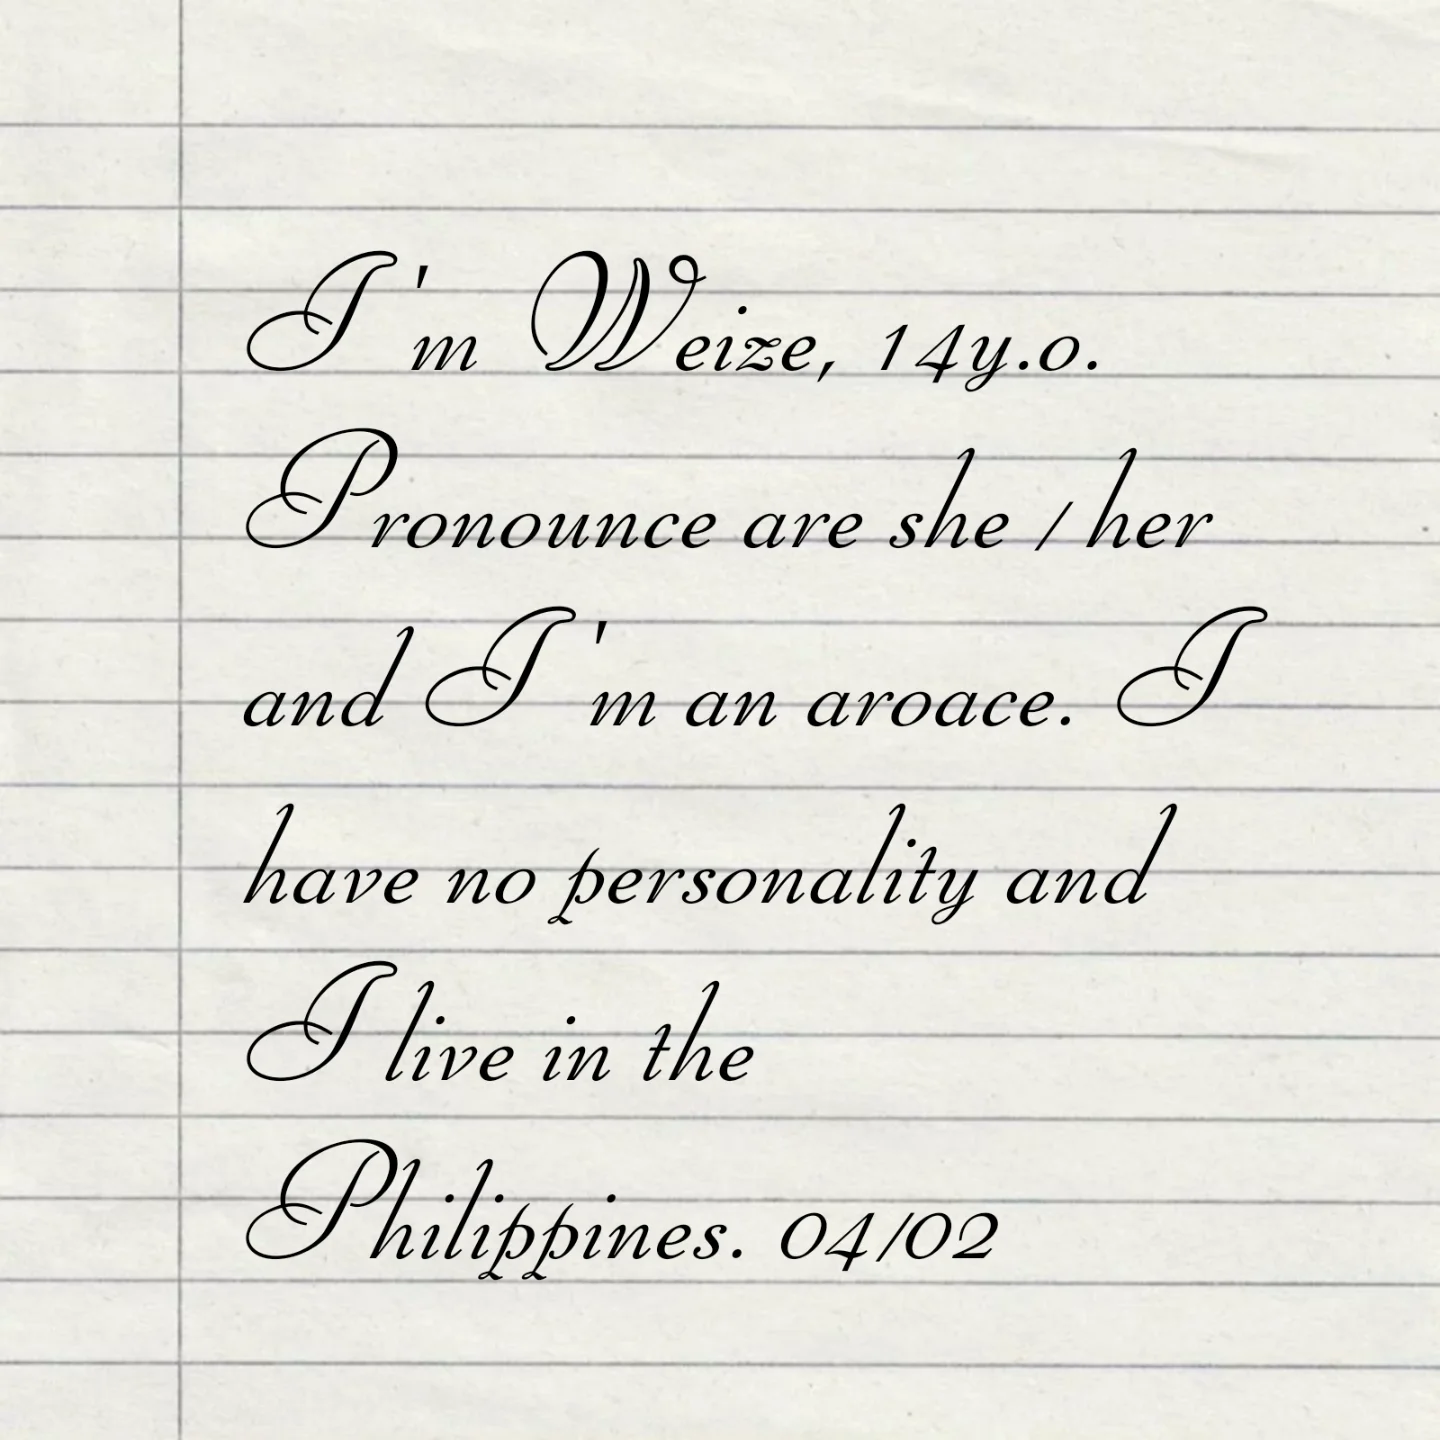 I'm Weize, 14y.o.
Pronounce are she / her
and I'm an aroace. I
have no personality and
I live in the
Philippines. 04/02